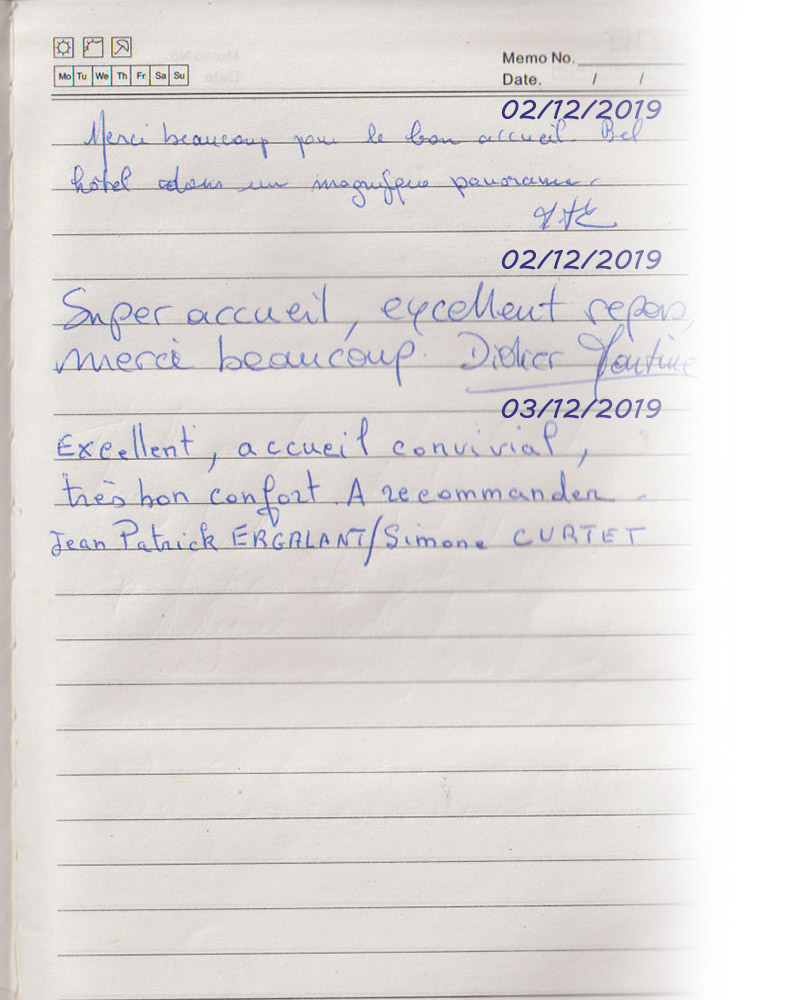 Memo No.
Mo Tu We Th Fr Sa Su
Date. / /
02/12/2019
Merci beaucoup pour le bon accueil. Bel
hôtel dans un magnifique panorama.
02/12/2019
Super accueil, excellent repas,
merci beaucoup. Didier Martine
03/12/2019
Excellent, accueil convivial,
très bon confort. A recommander.
Jean Patrick ERGALANT/Simone CURTET